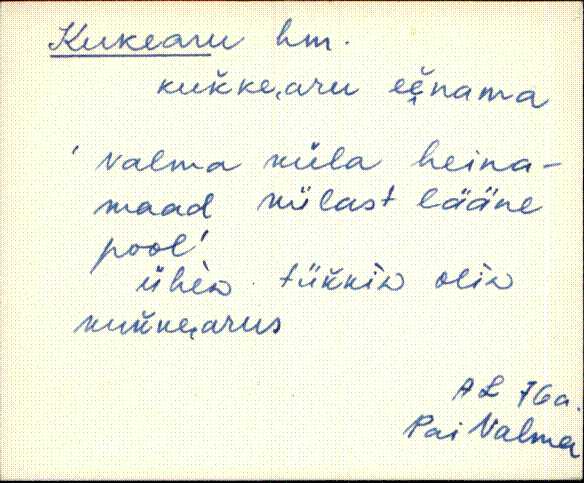 Kukearu hm.
kuk̆ke̬aru eḙ̆nama
' Valma küla heina-
maad külast lääne
pool'
ühen tük̆kin olin
kuk̆ke̬arus
AL 76a.
Pai Valma